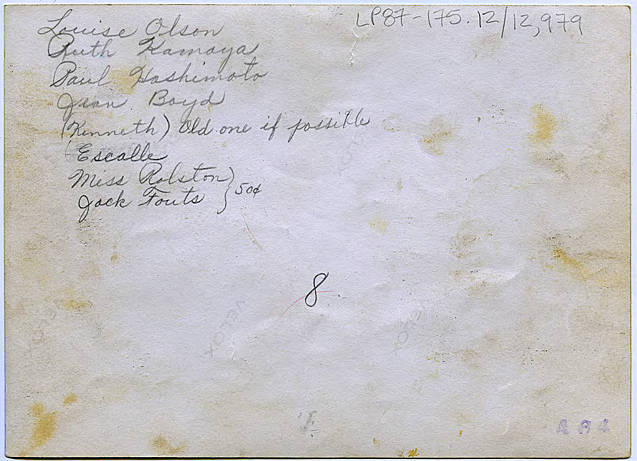 LP87-175.12/12,979
Louise Olson
Ruth Kamaya
Paul Hashimoto
Jean Boyd
(Kenneth) Old one if possible
(Escalle
Miss Ralston)
Jack Fouts } 50¢
8
VELOX
VELOX